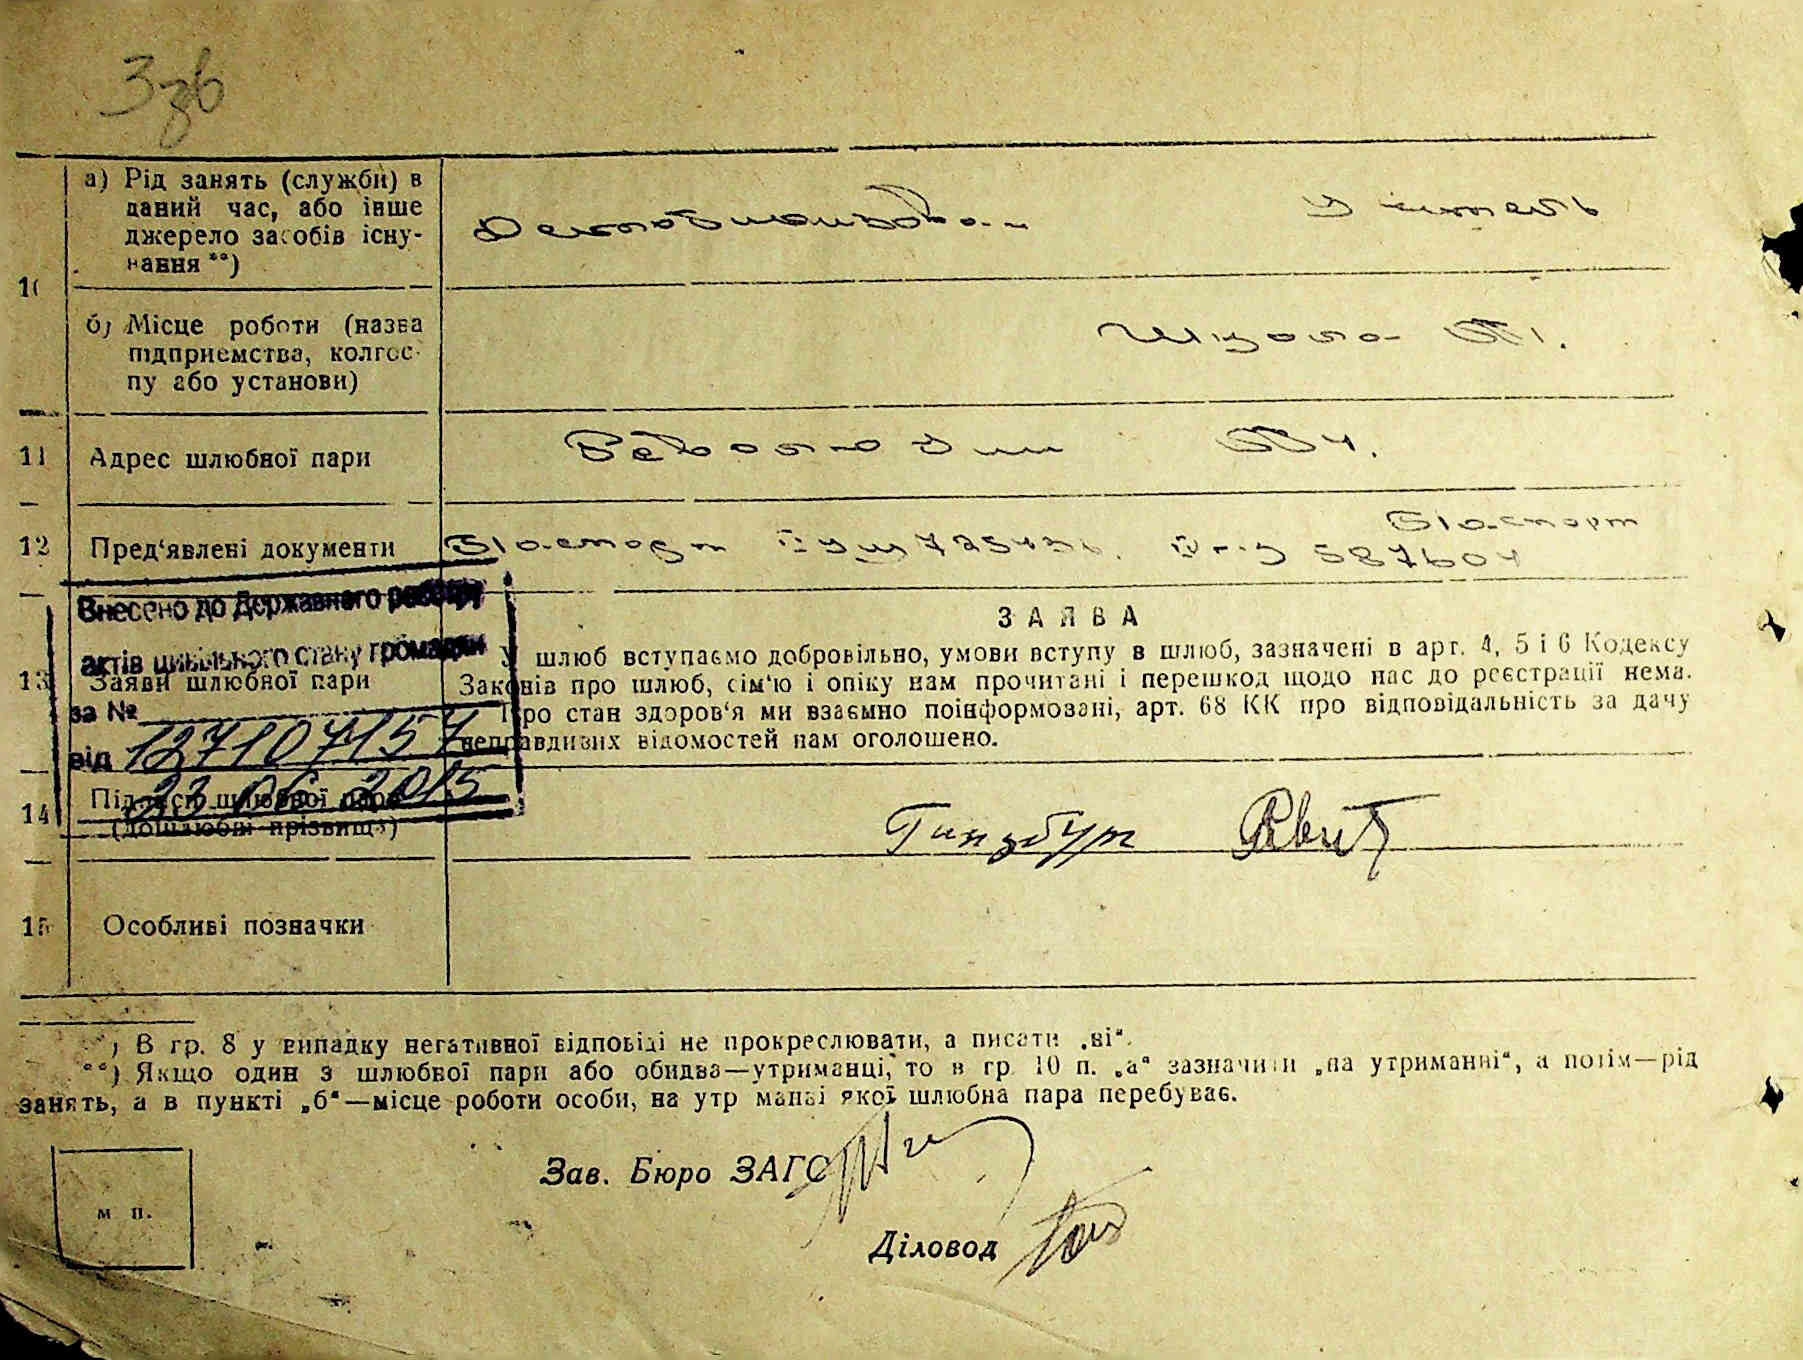 а) Рід занять (служби) в
даний час, або інше
джерело засобів існу-
вання **)
10
б) Місце роботи (назва
підприємства, колгос-
пу або установи)
11 Адрес шлюбної пари
12 Пред'явлені документи
Паспорт
Паспорт
587604
Внесено до Державного реєстру
актів цивільного стану громадян
за №
127107157
від
23 06 2015
13 Заяви шлюбної пари
ЗАЯВА
У шлюб вступаємо добровільно, умови вступу в шлюб, зазначені в арт. 4, 5 і 6 Кодексу
Законів про шлюб, сім'ю і опіку нам прочитані і перешкод щодо нас до реєстрації нема.
Про стан здоров'я ми взаємно поінформовані, арт. 68 КК про відповідальність за дачу
неправдивих відомостей нам оголошено.
14 Підписи шлюбної пари
(дошлюбні прізвища)
Гинзбург
15 Особливі позначки
*) В гр. 8 у випадку негативної відповіді не прокреслювати, а писати „ні“.
**) Якщо один з шлюбної пари або обидва—утриманці, то в гр. 10 п. „а“ зазначити „на утриманні“, а потім—рід
занять, а в пункті „б“—місце роботи особи, на утр манні якої шлюбна пара перебуває.
Зав. Бюро ЗАГС
м п.
Діловод